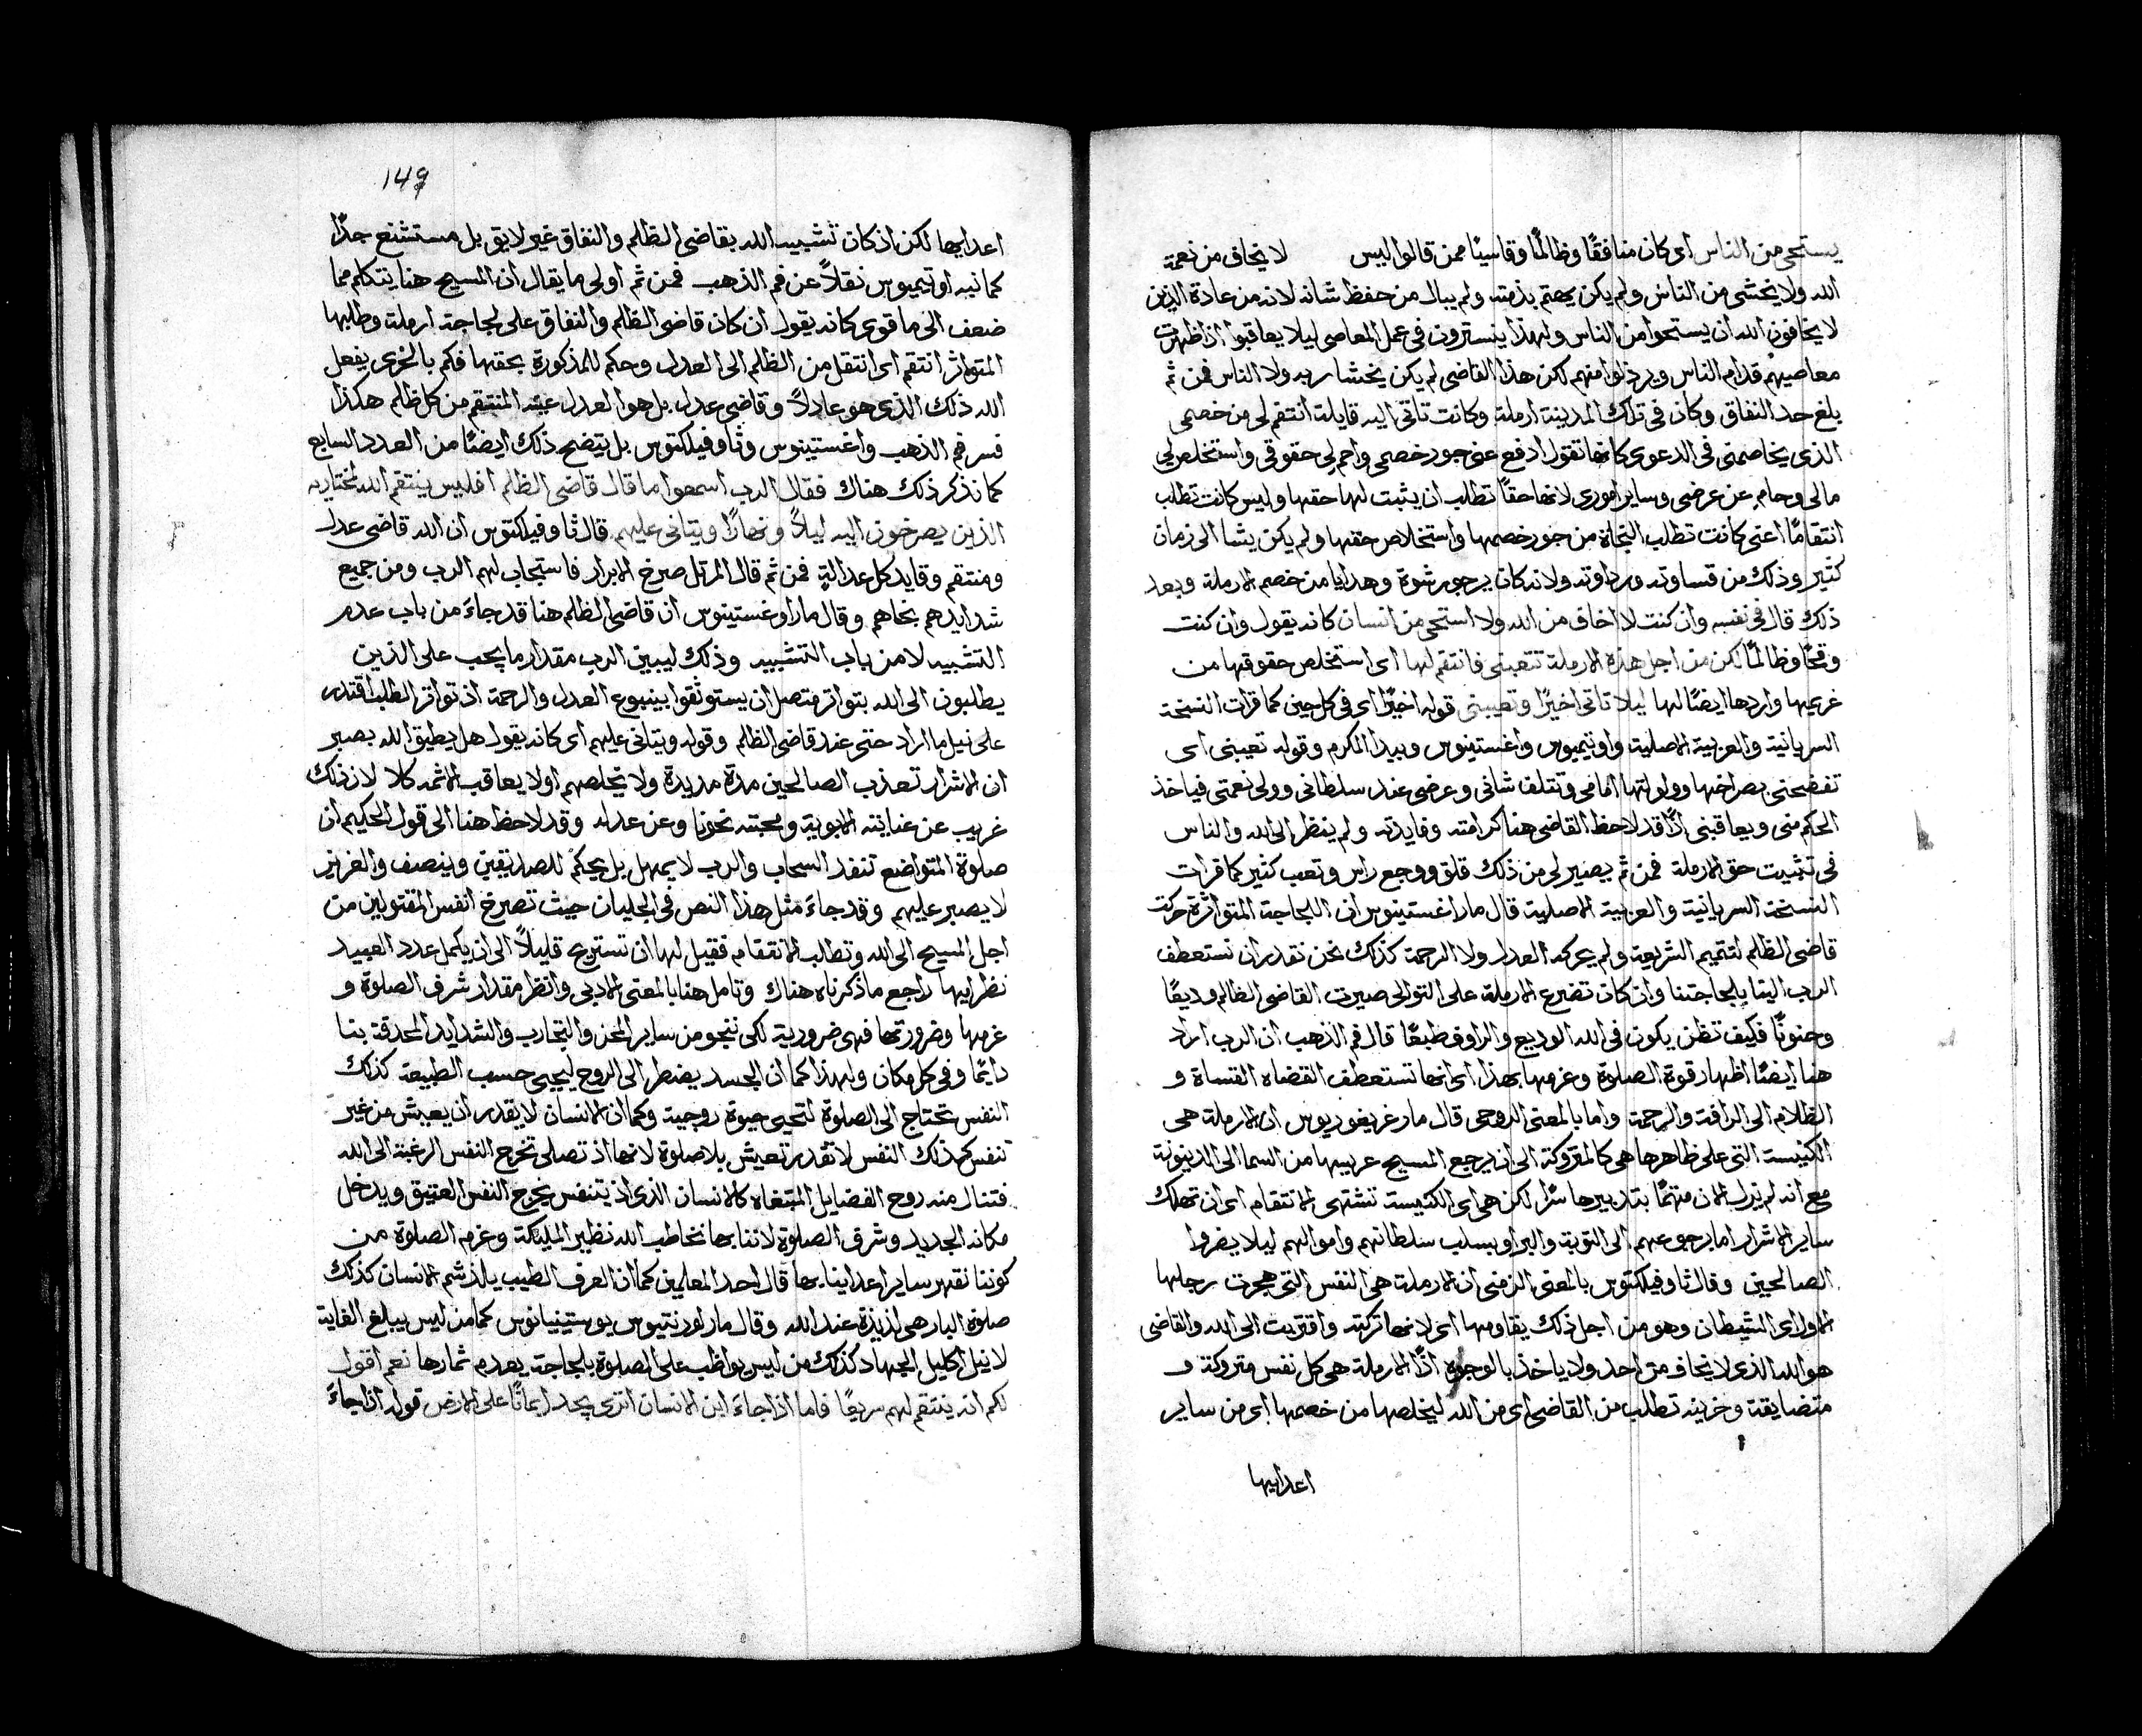 يستحى من الناس اى كان منافقًا وظالمًا وقاسيًا ممن قالوا ليس لا يخاف من نعمة
الله ولا يخشى من الناس ولم يكن يهتم بذمته ولم يبال من حفظ شانه لانه من عادة الذين
لا يخافون الله ان يستحوا من الناس ولهذا يتسترون فى عمل المعاصى ليلا يعاقبوا اذا ظهرت
معاصيهم قدام الناس ويرذلوا منهم لكن هذا القاضى لم يكن يخشا ربه ولا الناس فمن ثم
بلغ حد النفاق وكان فى تلك المدينة ارملة وكانت تاتى اليه قايلة انتقم لى من خصمى
الذى يخاصمنى فى الدعوى كانها تقول ادفع عنى جور خصمى واحم لى حقوقى واستخلص لى
مالى وحام عن عرضى وساير امورى لانها حقًا تطلب ان يثبت لها حقها وليس كانت تطلب
انتقامًا اعنى كانت تطلب النجاة من جور خصمها واستخلاص حقها ولم يكن يشا الى زمان
كثير وذلك من قساوته ورداوته ولانه كان يرجو رشوة وهدايا من خصم الارملة وبعد
ذلك قال فى نفسه وان كنت لا اخاف من الله ولا استحى من انسان كانه يقول وان كنت
وقحًا وظالمًا لكن من اجل هذه الارملة تتعبنى فانتقم لها اى استخلص حقوقها من
غريمها واردها ايضًا لها ليلا تاتى اخيرًا وتعيبنى قوله اخيرًا اى فى كل حين كما قرات النسخة
السريانية والعربية الاصلية واوتيميوس واغستينوس وبيدا المكرم وقوله تعيبنى اى
تفضحنى بصراخها وولولتها امامى وتتلف شانى وعرضى عند سلطانى وولى نعمتى فياخذ
الحكم منى ويعاقبنى اذًا قد لاحظ القاضى هنا كرامته وفايدته ولم ينظر الى الله والناس
فى تثبيت حق الارملة فمن ثم يصير لى من ذلك قلق ووجع راس وتعب كثير كما قرات
النسخة السريانية والعربية الاصلية قال مار اغستينوس ان اللجاجة المتواترة حركت
قاضى الظلم لتتميم الشريعة ولم يحركه العدل ولا الرحمة كذلك نحن نقدر ان نستعطف
الرب الينا بلجاجتنا وان كان تضرع الارملة على التوالى صيرت القاضى الظالم وديعًا
وحنونًا فكيف تظن يكون فى الله الوديع والراوف طبعًا قال فم الذهب ان الرب اراد
هنا ايضًا اظهار قوة الصلوة وعزمها بهذا اى انها تستعطف القضاه القساة و
الظلام الى الرافة والرحمة واما بالمعنى الروحى قال مار غريغوريوس ان الارملة هى
الكنيسة التى على ظاهرها هى كالمتروكة الى ان يرجع المسيح عريسها من السما الى الدينونة
مع انه لم يزل الان مهتمًا بتدبيرها سرًا لكن هى اى الكنيسة تشتهى الانتقام اى ان تهلك
ساير الاشرار اما برجوعهم الى التوبة والبر او بسلب سلطانهم واموالهم ليلا يضروا
الصالحين وقال ثاوفيلكتوس بالمعنى الزمنى ان الارملة هى النفس التى هجرت رجلها
الاول اى الشيطان وهو من اجل ذلك يقاومها اى لانها تركته واقتربت الى الله والقاضى
هو الله الذى لا يخاف من احد ولا ياخذ بالوجوه اذًا الارملة هى كل نفس متروكة و
متضايقة وحزينه تطلب من القاضى اى من الله ليخلصها من خصمها اى من ساير
اعدايها
149
اعدايها لكن اذ كان تشبيه الله بقاضى الظلم والنفاق غير لايق بل مستشنع جدًا
كما نبه اوتيميوس نقلاً عن فم الذهب فمن ثم اولى ما يقال ان المسيح هنا يتكلم مما
ضعف الى ما قوى كانه يقول ان كان قاضى الظلم والنفاق على لجاجة ارملة وطلبها
المتواثر انتقم اى انتقل من الظلم الى العدل وحكم للمذكورة بحقها فكم بالحرى يفعل
الله ذلك الذى هو عادلاً وقاضى عدل بل هو العدل عينه المنتقم من كل ظلم هكذا
فسر فم الذهب واغستينوس وثاوفيلكتوس بل يتضح ذلك ايضًا من العدد السابع
كما نذكر ذلك هناك فقال الرب اسمعوا ما قال قاضى الظلم افليس ينتقم الله لمختاريه
الذين يصرخون اليه ليلاً ونهارًا ويتانى عليهم قال ثاوفيلكتوس ان الله قاضى عدل
ومنتقم وقايد كل عدالةٍ فمن ثم قال المرتل صرخ الابرار فاستجاب لهم الرب ومن جميع
شدايدهم نجاهم وقال مار اوغستينوس ان قاضى الظلم هنا قد جاءَ من باب عدم
التشبيه لا من باب التشبيه وذلك ليبين الرب مقدار ما يجب على الذين
يطلبون الى الله بتواتر متصل ان يستوثقوا بينبوع العدل والرحمة اذ تواتر الطلب اقتدر
على نيل ما اراد حتى عند قاضى الظلم وقوله ويتانى عليهم اى كانه يقول هل يطيق الله يصبر
ان الاشرار تعذب الصالحين مدة مديدة ولا يخلصهم او لا يعاقب الاثمه كلا لان ذلك
غريب عن عنايته الابوية ومحبته نحونا وعن عدله وقد لاحظ هنا الى قول الحكيم ان
صلوة المتواضع تنفد السحاب والرب لا يمهل بل يحكم للصديقين وينصف والعزيز
لا يصبر عليهم وقد جاءَ مثل هذا النص فى الجليان حيث تصرخ انفس المقتولين من
اجل المسيح الى الله وتطلب الانتقام فقيل لها ان تستريح قليلاً الى ان يكمل عدد العبيد
نظرايها راجع ما ذكرناه هناك وتامل هنا بالمعنى الادبى وانظر مقدار شرف الصلوة و
عزمها وضرورتها فهى ضرورية لكى ننجو من ساير المحن والتجارب والشدايد المحدقة بنا
دايمًا وفى كل مكان ولهذا كما ان الجسد يضطر الى الروح ليحيى حسب الطبيعة كذلك
النفس تحتاج الى الصلوة لتحيى حيوة روحية وكما ان الانسان لا يقدر ان يعيش من غير
تنفس كذلك النفس لا تقدر تعيش بلا صلوة لانها اذ تصلى تخرج النفس الرغبة الى الله
فتنال منه روح الفضايل المبتغاه كالانسان الذى اذ يتنفس يخرج النفس العتيق ويدخل
مكانه الجديد وشرف الصلوة لاننا بها نخاطب الله نظير الملايكة وعزم الصلوة من
كوننا نقهر ساير اعداينا بها قال احد المعلمين كما ان العرف الطيب يلذ شم الانسان كذلك
صلوة البار هى لذيذة عند الله وقال مار لورنتيوس يوستينيانوس كما من ليس يبلغ الغاية
لا ينل اكليل الجهاد كذلك من ليس يواظب على الصلوة بلجاجة يعدم ثمارها نعم اقول
لكم انه ينتقم لهم سريعًا فاما اذا جاءَ ابن الانسان اترى يجد ايمانًا على الارض قوله اذا جاءَ